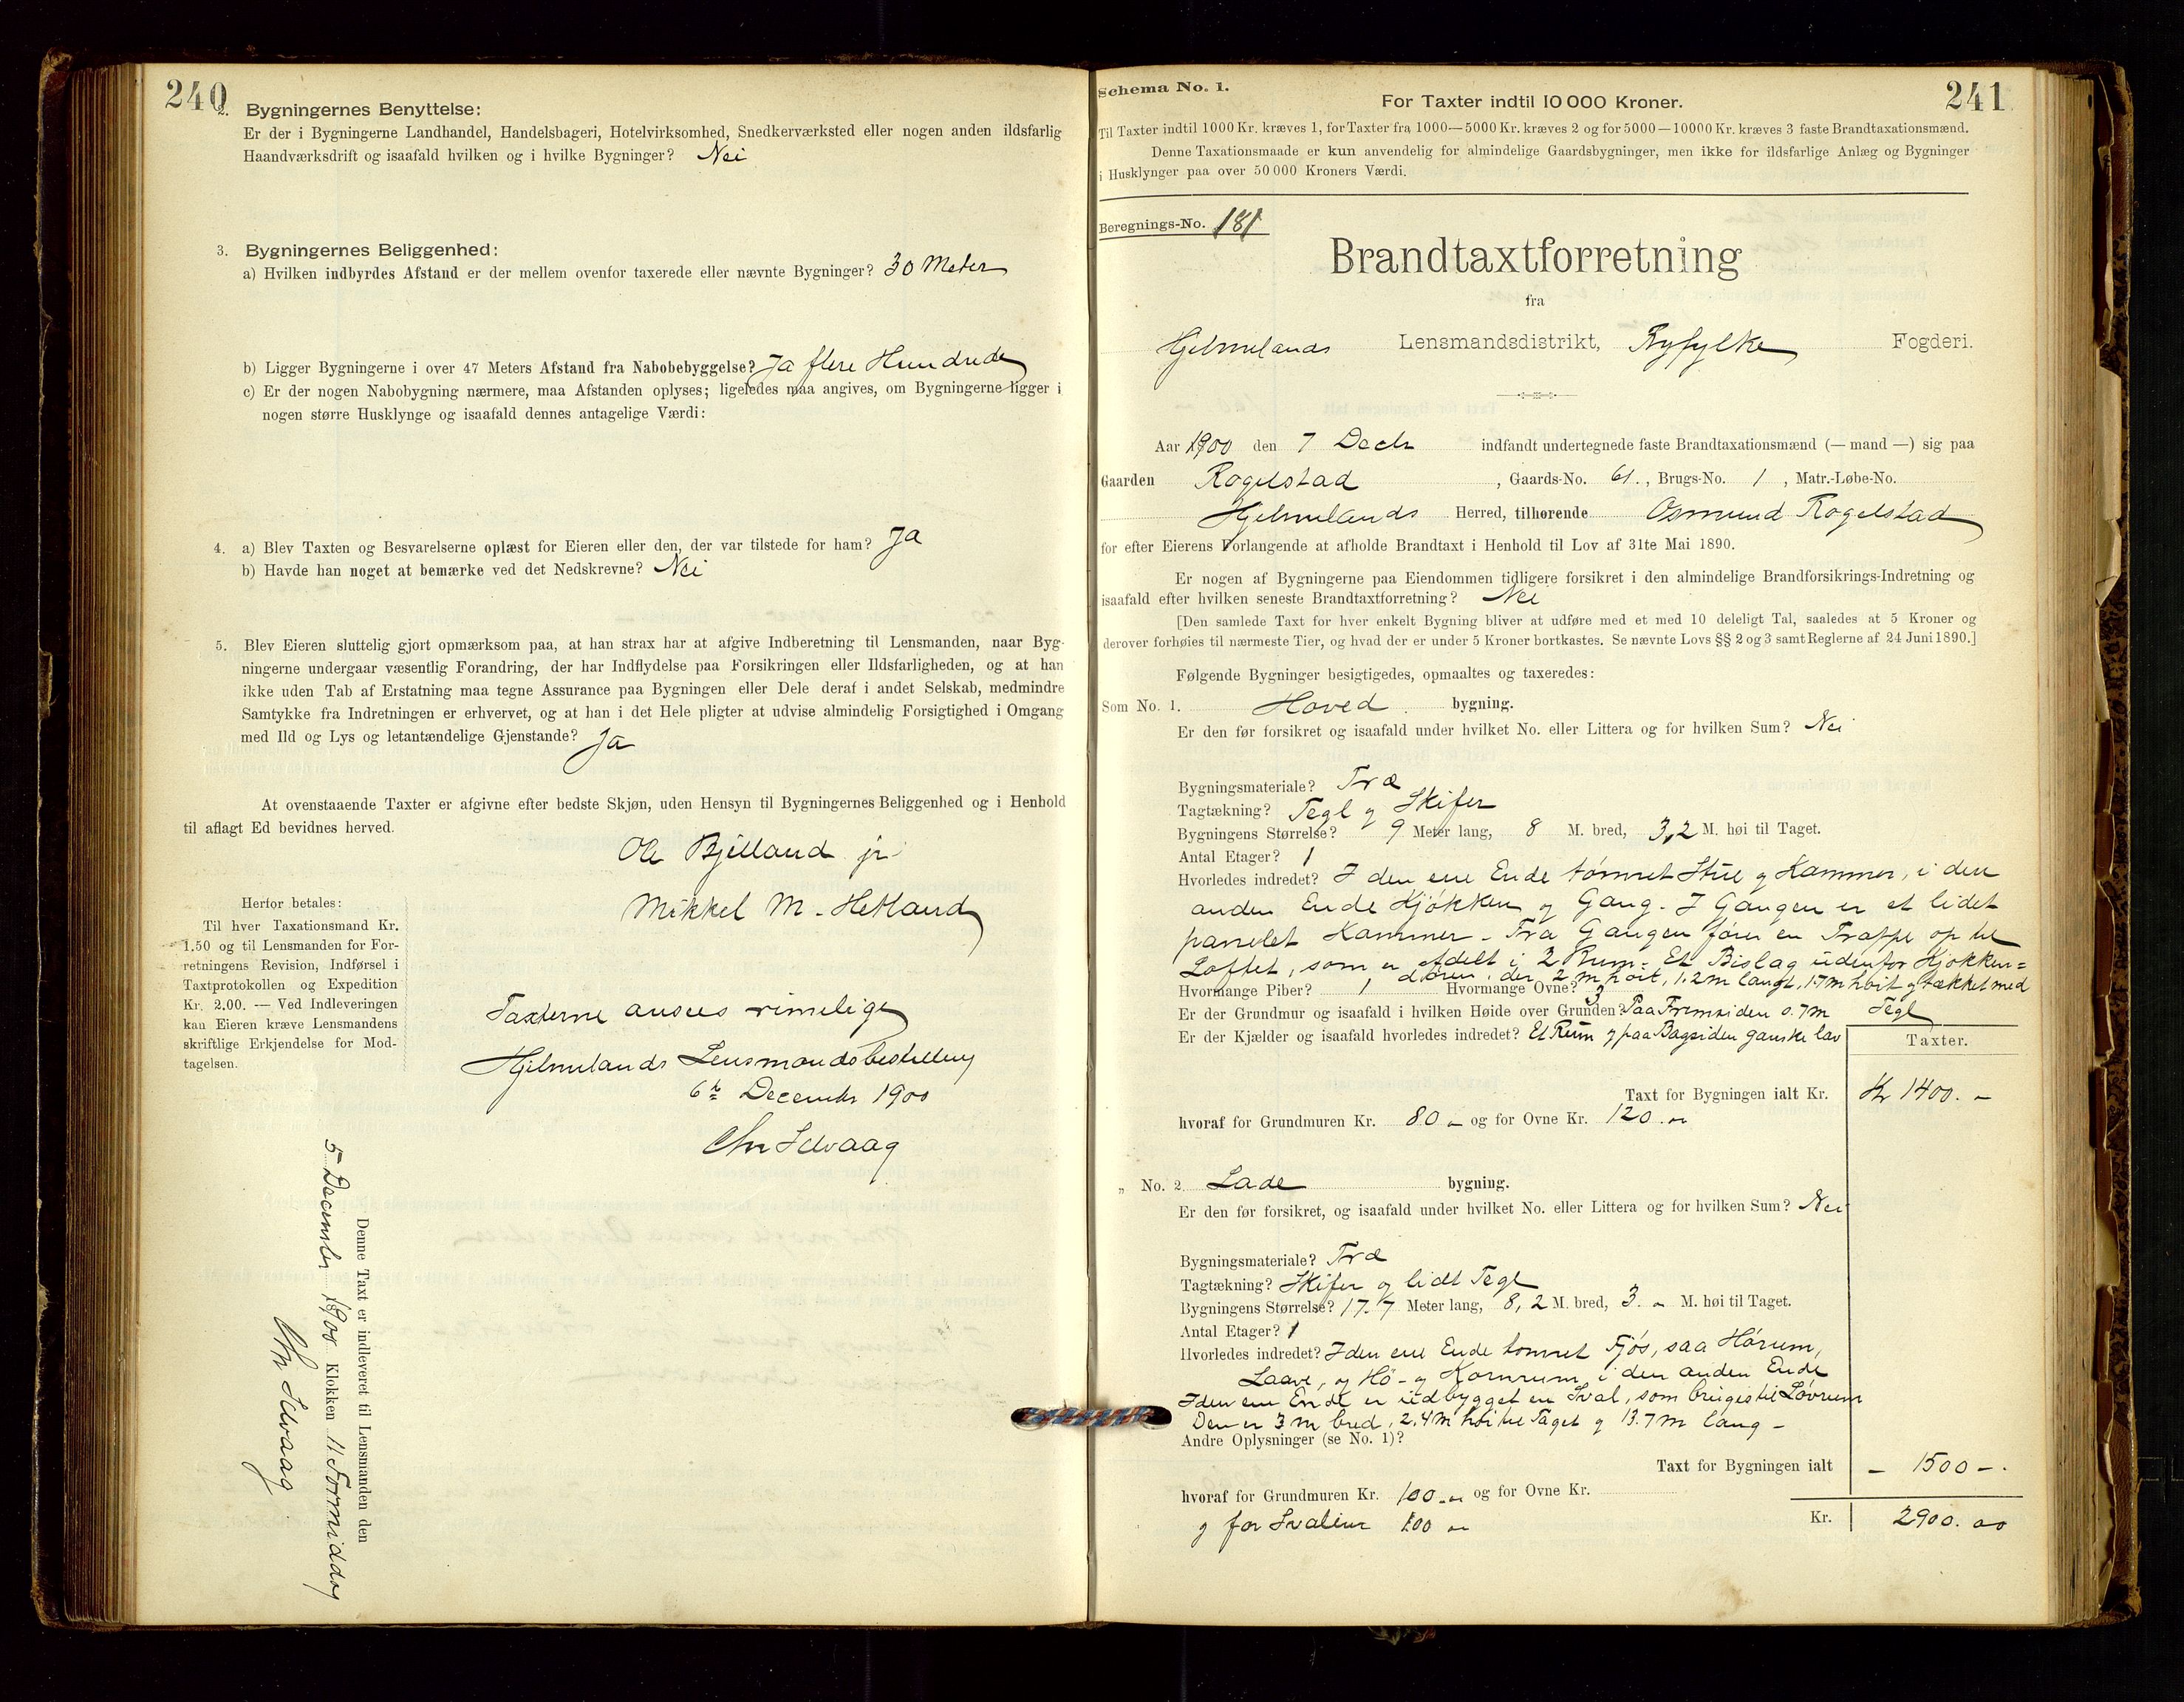 240
2. Bygningernes Benyttelse:
Er der i Bygningerne Landhandel, Handelsbageri, Hotelvirksomhed, Snedkerværksted eller nogen anden ildsfarlig
Haandværksdrift og isaafald hvilken og i hvilke Bygninger? Nei
3. Bygningernes Beliggenhed:
a) Hvilken indbyrdes Afstand er der mellem ovenfor taxerede eller nævnte Bygninger? 30 Meter
b) Ligger Bygningerne i over 47 Meters Afstand fra Nabobebyggelse? Ja flere Hundrede
c) Er der nogen Nabobygning nærmere, maa Afstanden oplyses; ligeledes maa angives, om Bygningerne ligger i
nogen større Husklynge og isaafald dennes antagelige Værdi:
4. a) Blev Taxten og Besvarelserne oplæst for Eieren eller den, der var tilstede for ham? Ja
b) Havde han noget at bemærke ved det Nedskrevne? Nei
5. Blev Eieren sluttelig gjort opmærksom paa, at han strax har at afgive Indberetning til Lensmanden, naar Byg-
ningerne undergaar væsentlig Forandring, der har Indflydelse paa Forsikringen eller Ildsfarligheden, og at han
ikke uden Tab af Erstatning maa tegne Assurance paa Bygningen eller Dele deraf i andet Selskab, medmindre
Samtykke fra Indretningen er erhvervet, og at han i det Hele pligter at udvise almindelig Forsigtighed i Omgang
med Ild og Lys og letantændelige Gjenstande? Ja
At ovenstaaende Taxter er afgivne efter bedste Skjøn, uden Hensyn til Bygningernes Beliggenhed og i Henhold
til aflagt Ed bevidnes herved.
Ole Bjelland jr
Mikkel M. Hetland
Herfor betales:
Til hver Taxationsmand Kr.
1.50 og til Lensmanden for For-
retningens Revision, Indførsel i
Taxtprotokollen og Expedition
Kr. 2.00. — Ved Indleveringen
kan Eieren kræve Lensmandens
skriftlige Erkjendelse for Mod-
tagelsen.
Taxterne ansees rimelige
Hjelmelands Lensmandsbestilling
6te December 1900
Chr Selvaag
Denne Taxt er indleveret til Lensmanden den
5 December 1900 Klokken 11 Formiddag
Chr Selvaag
241
Schema No. 1.
For Taxter indtil 10 000 Kroner.
Til Taxter indtil 1000 Kr. kræves 1, for Taxter fra 1000—5000 Kr. kræves 2 og for 5000—10000 Kr. kræves 3 faste Brandtaxationsmænd.
Denne Taxationsmaade er kun anvendelig for almindelige Gaardsbygninger, men ikke for ildsfarlige Anlæg og Bygninger
i Husklynger paa over 50 000 Kroners Værdi.
Beregnings-No. 181
Brandtaxtforretning
fra
Hjelmelands Lensmandsdistrikt, Ryfylke Fogderi.
Aar 1900 den 7 Decbr indfandt undertegnede faste Brandtaxationsmænd (— mand —) sig paa
Gaarden Rogelstad, Gaards-No. 61., Brugs-No. 1, Matr.-Løbe-No.
Hjelmelands Herred, tilhørende Osmund Rogelstad
for efter Eierens Forlangende at afholde Brandtaxt i Henhold til Lov af 31te Mai 1890.
Er nogen af Bygningerne paa Eiendommen tidligere forsikret i den almindelige Brandforsikrings-Indretning og
isaafald efter hvilken seneste Brandtaxtforretning? Nei
[Den samlede Taxt for hver enkelt Bygning bliver at udføre med et med 10 deleligt Tal, saaledes at 5 Kroner og
derover forhøies til nærmeste Tier, og hvad der er under 5 Kroner bortkastes. Se nævnte Lovs §§ 2 og 3 samt Reglerne af 24 Juni 1890.]
Følgende Bygninger besigtigedes, opmaaltes og taxeredes:
Som No. 1. Hoved bygning.
Er den før forsikret og isaafald under hvilket No. eller Littera og for hvilken Sum? Nei
Bygningsmateriale? Træ
Tagtækning? Tegl og Skifer
Bygningens Størrelse? 9 Meter lang, 8 M. bred, 3,2 M. høi til Taget.
Antal Etager? 1
Hvorledes indredet? I den ene Ende tømret Stue og Kammer, i den
anden Ende Kjøkken og Gang. I Gangen er et lidet
panelet Kammer. Fra Gangen fører en Trappe op til
Loftet, som er afdelt i 2 Rum. Et Bislag udenfor Kjøkken=
døren, der 2 m høit, 1.2 m langt, 1.7 m høit og tækket med
Tegl
Hvormange Piber? 1 Hvormange Ovne? 3
Er der Grundmur og isaafald i hvilken Høide over Grunden? Paa Fremsiden 0.7 m
Er der Kjælder og isaafald hvorledes indredet? Et Rum og paa Bagsiden ganske lav
Taxter.
Taxt for Bygningen ialt Kr. Kr 1400. -
hvoraf for Grundmuren Kr. 80 - og for Ovne Kr. 120. -
„ No. 2. Lade bygning.
Er den før forsikret, og isaafald under hvilket No. eller Littera og for hvilken Sum? Nei
Bygningsmateriale? Træ
Tagtækning? Skifer og lidt Tegl
Bygningens Størrelse? 17.7 Meter lang, 8,2 M. bred, 3. - M. høi til Taget.
Antal Etager? 1
Hvorledes indredet? I den ene Ende tømret Fjøs, saa Hørum,
Laave, og Hø- og Kornrum i den anden Ende
I den ene Ende er udbygget en Sval, som bruges til Løvrum
Den er 3 m bred, 2,4 m høi til Taget og 13.7 m lang -
Andre Oplysninger (se No. 1)?
Taxt for Bygningen ialt - 1500 -.
hvoraf for Grundmuren Kr. 100 - og for Ovne Kr.
og for Svalen 100 -
Kr. 2900. 00